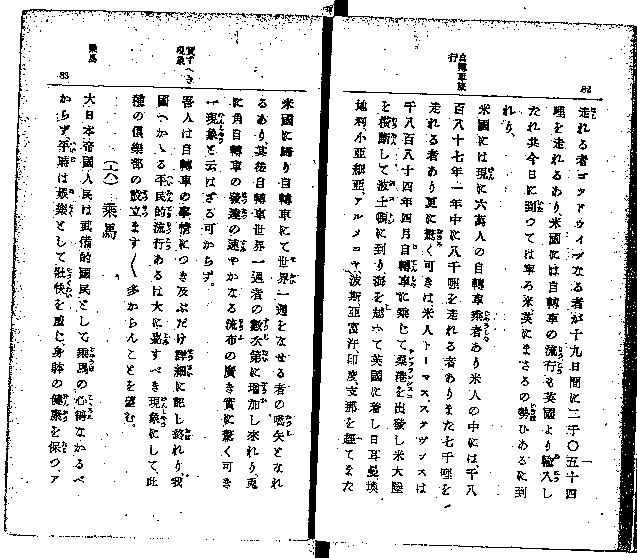 82
自轉車旅行
走れる者ゴッドウイブなる者が十九日間に二千〇五十四
哩を走れるあり、米國には自轉車の流行も英國より輸入し
たれ共今日に到つては寧ろ米英にまさるの勢ひあるに到
れり、
米國には現に六萬人の自轉車乘者あり米人の中には、千八
百八十七年一年中に八千哩を走れる者ありまた七千哩を
走れる者あり更に驚く可きは米人トーマス、スタヴンスは
千八百八十四年四月自轉車に乘じて桑港を出發し米大陸
を橫斷して波士頓に到り海を越へて英國に着し日耳曼墺
地利小亞細亞、アルメニヤ、波斯亞富汗、印度、支那を經てまた
83
賀すべき現象
乘馬
米國に歸り自轉車にて世界一週をなせる者の嚆矢となれ
るあり、其後自轉車世界一週者の數次第に增加し來れり兎
に角自轉車の發達の速やかなる流布の廣き實に驚く可き
一現象と云はざる可からず。
吾人は自轉車の事情につき及ぶだけ詳細に記し終れり、我
國にかゝる平民的流行あるは大に嘉すべき現象にして、此
種の俱樂部の設立ます〱多からんことを望む。
(六) 乘馬
大日本帝國人民は武備的國民として乘馬の心得なかるべ
からず平時は娛樂として壯快を重じ身躰の健康を保つ、ア